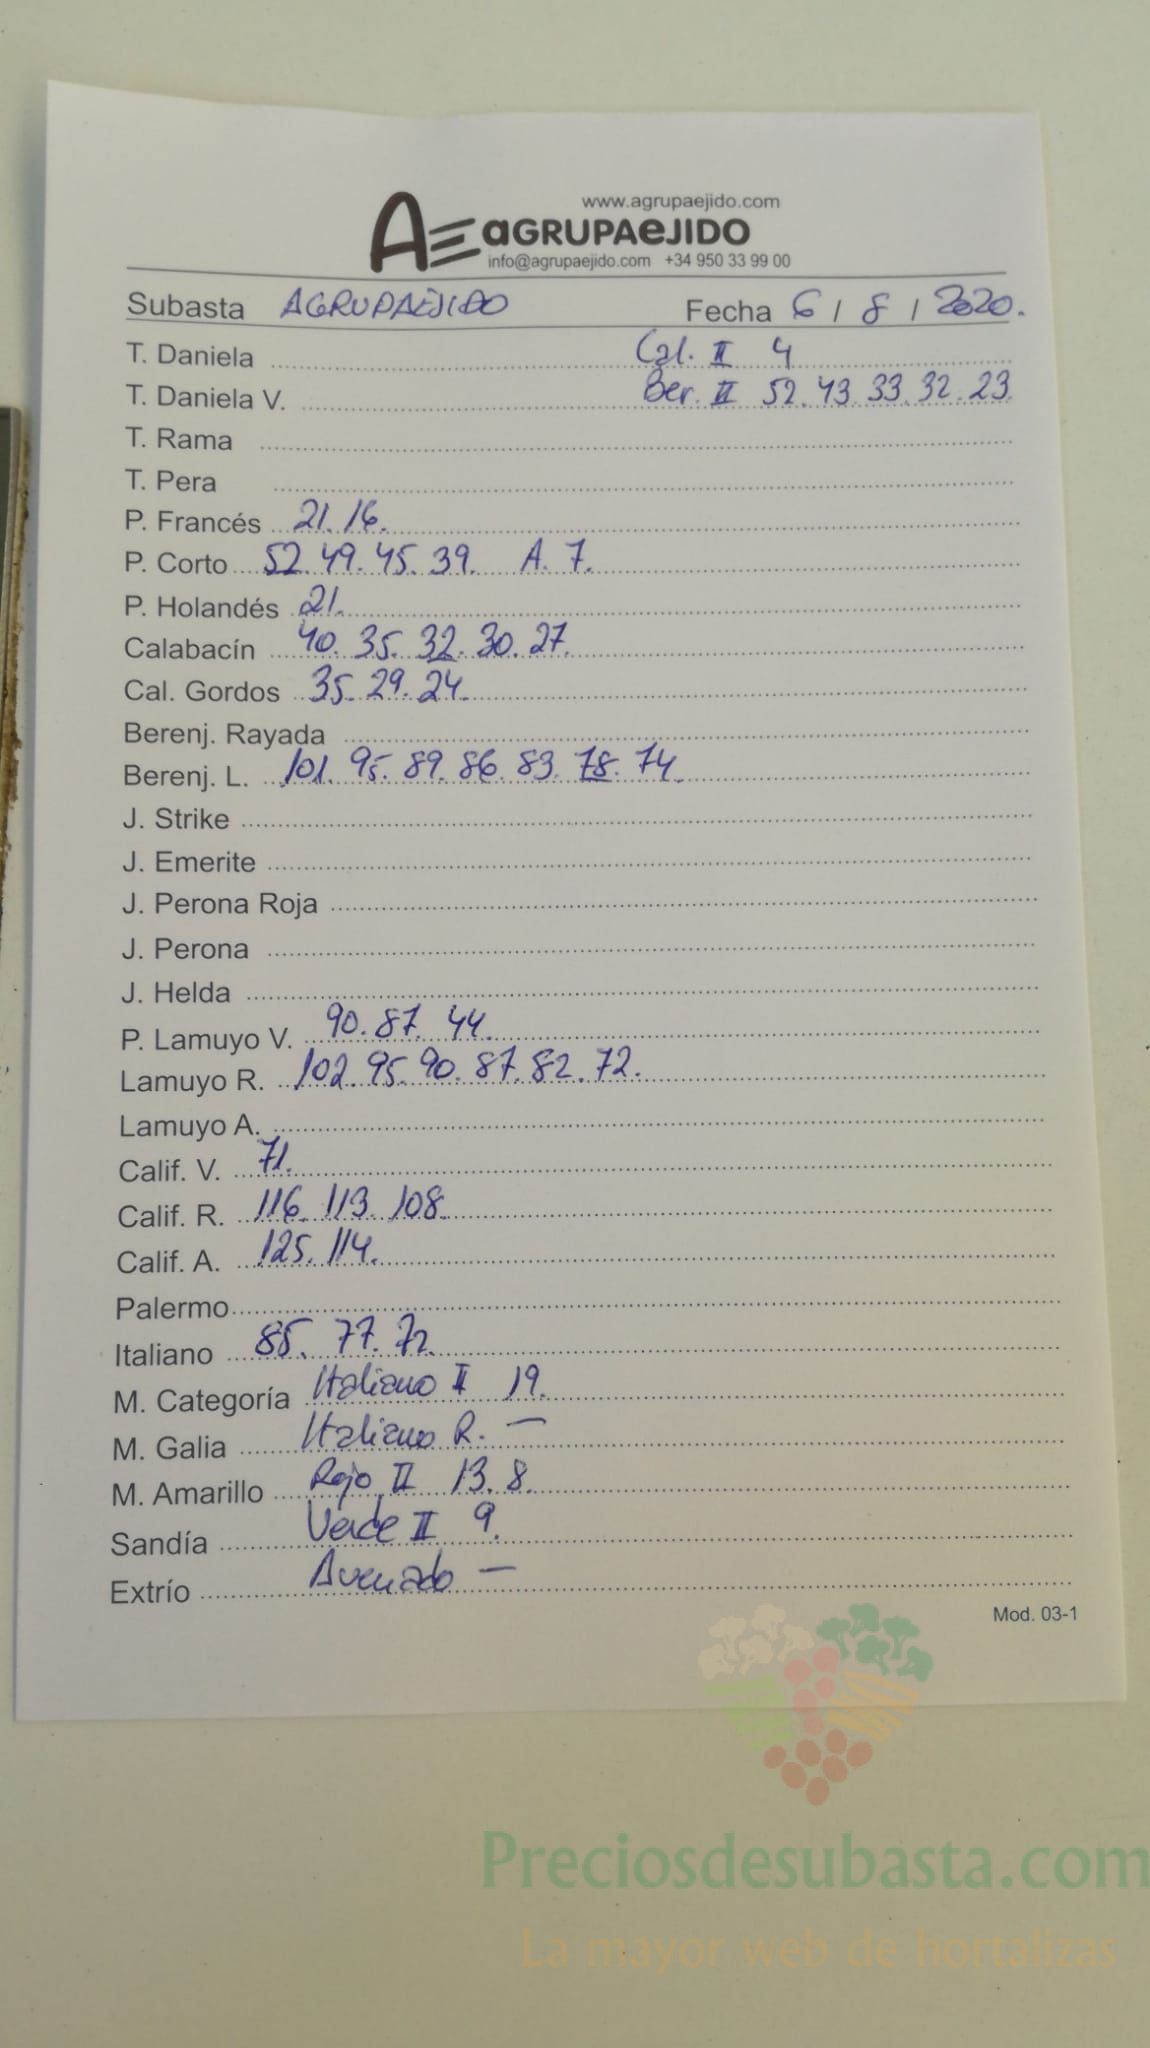 www.agrupaejido.com
AE aGRUPAeJIDO
info@agrupaejido.com +34 950 33 99 00
Subasta AGRUPAEJIDO Fecha 6 / 8 / 2020.
T. Daniela Cal. II 4
T. Daniela V. Ber. II 52. 43. 33. 32. 23.
T. Rama
T. Pera
P. Francés 21. 16.
P. Corto 52. 49. 45. 39. A. 7.
P. Holandés 21.
Calabacín 40. 35. 32. 30. 27.
Cal. Gordos 35. 29. 24.
Berenj. Rayada
Berenj. L. 101. 95. 89. 86. 83. 78. 74.
J. Strike
J. Emerite
J. Perona Roja
J. Perona
J. Helda
P. Lamuyo V. 90. 87. 44.
Lamuyo R. 102. 95. 90. 87. 82. 72.
Lamuyo A.
Calif. V. 71.
Calif. R. 116. 113. 108.
Calif. A. 125. 114.
Palermo
Italiano 85. 77. 72.
M. Categoría Italiano II 19.
M. Galia Italiano R. —
M. Amarillo Rojo II 13. 8.
Sandía Verde II 9.
Extrío Asurado —
Mod. 03-1
Preciosdesubasta.com
La mayor web de hortalizas